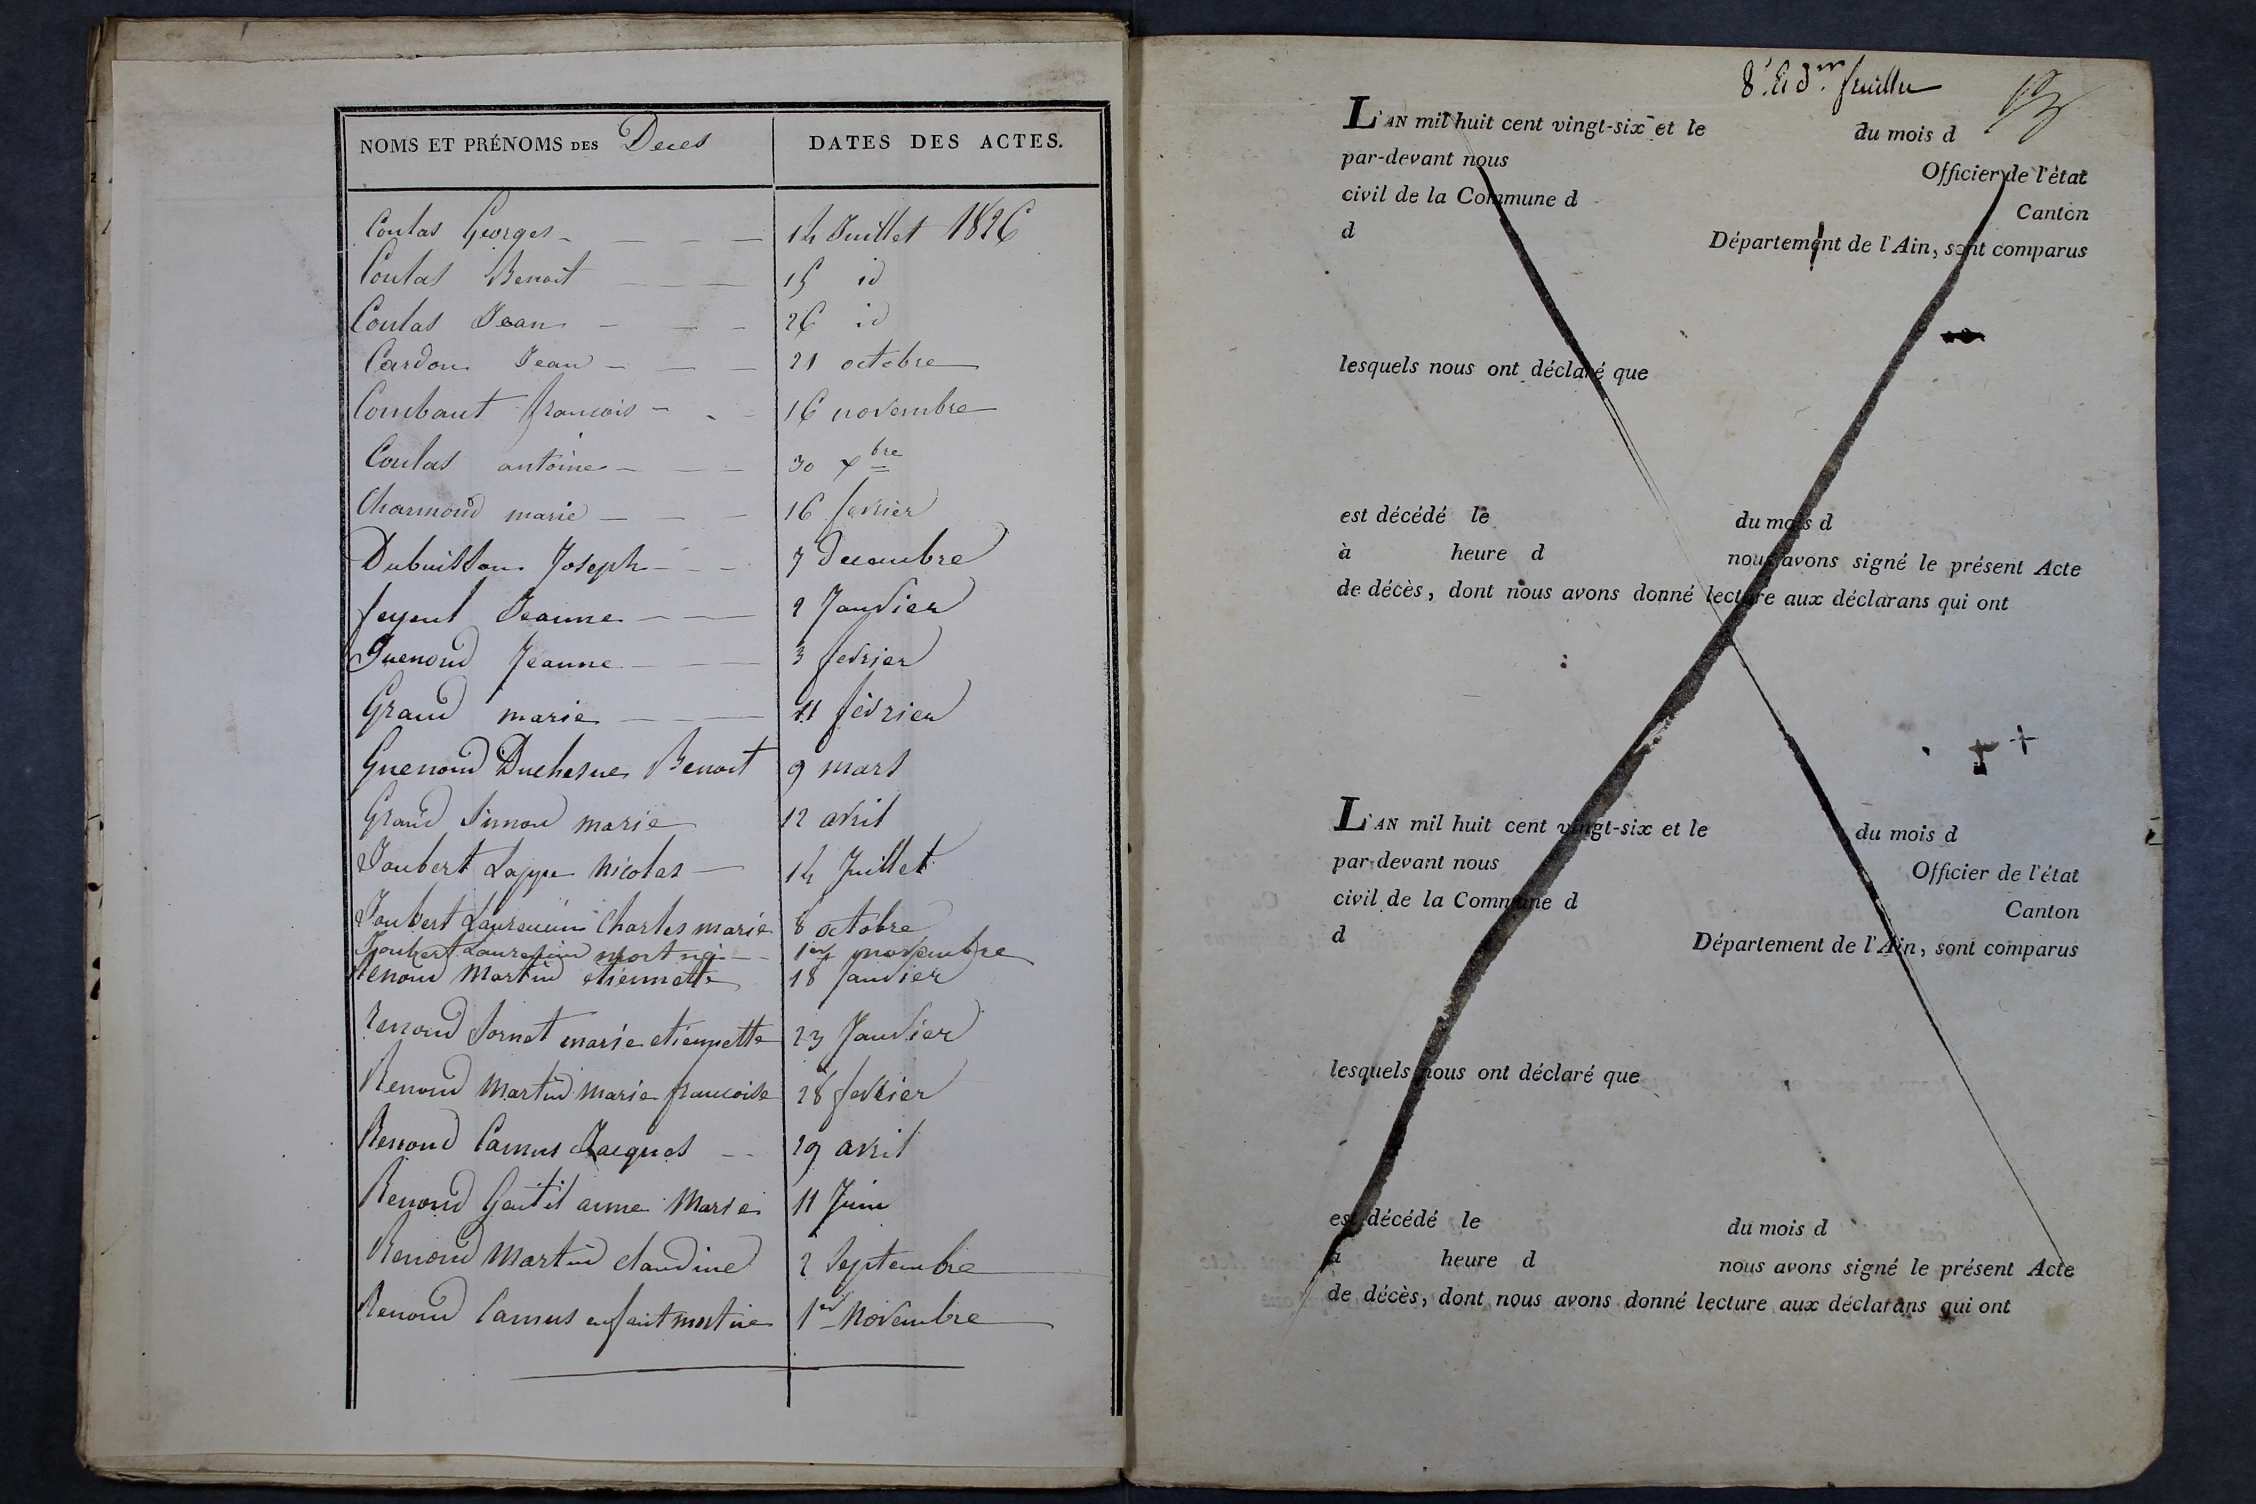 NOMS ET PRÉNOMS DES Deces
DATES DES ACTES.
Coulas Georges - 14 Juillet 1826
Coulas Benoit - 15 id
Coulas Jean - 26 id
Cardon Jean - 21 octobre
Combaut francois - 16 novembre
Coulas antoine - 30 xbre
Charmond marie - 16 fevrier
Dubuisson Joseph - 7 decembre
Jeanne - 2 Janvier
Guenoud Jeanne - 3 fevrier
Grand marie - 11 février
Guenoud Duchesne Benoit 9 mars
Grand marie 12 avril
Joubert Lappe Nicolas - 14 Juillet
Joubert Laurencin Charles marie 8 octobre
Joubert Laurencin mort né - 1er novembre
Renoud Martin etiennette 18 Janvier
Renoud Sornet marie etiennette 23 Janvier
Renoud Martin Marie francoise 28 fevrier
Renoud Camus Jacques - 29 avril
Renoud Gentil anne Marie 11 Juin
Renoud Martin claudine 2 Septembre
Renoud Camus enfant mort né 1er Novembre
8e et dre feuille
L'AN mil huit cent vingt-six et le du mois d
par-devant nous Officier de l'état
civil de la Commune d Canton
d Département de l'Ain, sont comparus
lesquels nous ont déclaré que
est décédé le du mois d
à heure d nous avons signé le présent Acte
de décès, dont nous avons donné lecture aux déclarans qui ont
L'AN mil huit cent vingt-six et le du mois d
par-devant nous Officier de l'état
civil de la Commune d Canton
d Département de l'Ain, sont comparus
lesquels nous ont déclaré que
est décédé le du mois d
à heure d nous avons signé le présent Acte
de décès, dont nous avons donné lecture aux déclarans qui ont